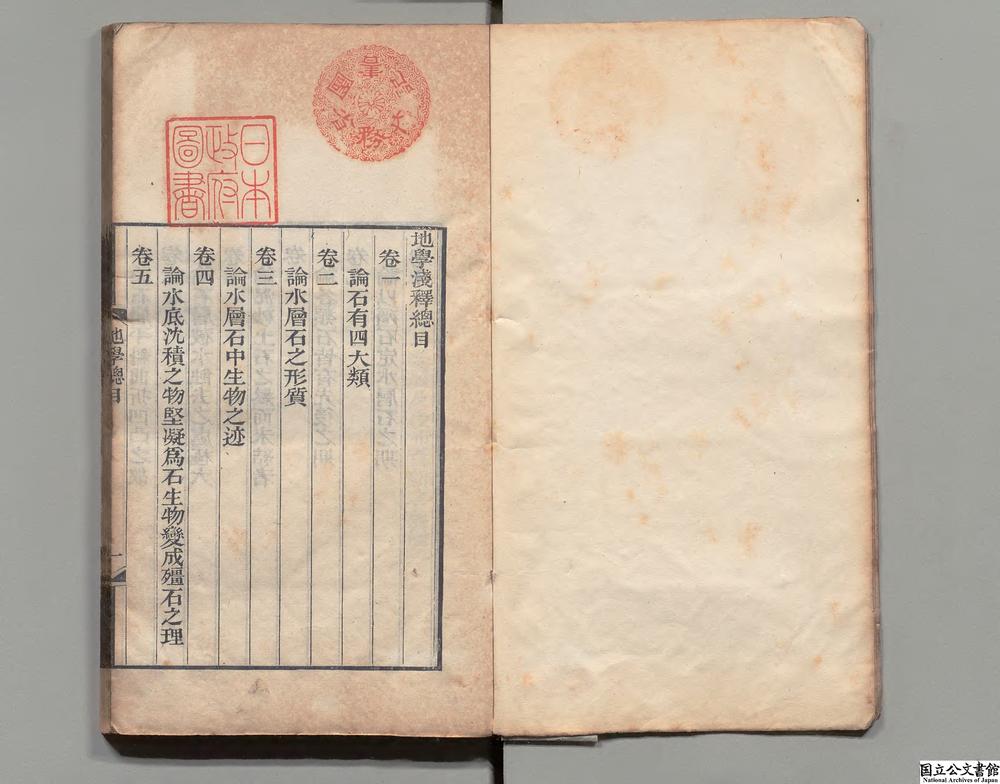 地學淺釋總目
卷一
論石有四大類
卷二
論水層石之形質
卷三
論水層石中生物之迹
卷四
論水底沈積之物堅凝爲石生物變成殭石之理
卷五
地學總目
一
日本
政府
圖書
国立公文書館
National Archives of Japan